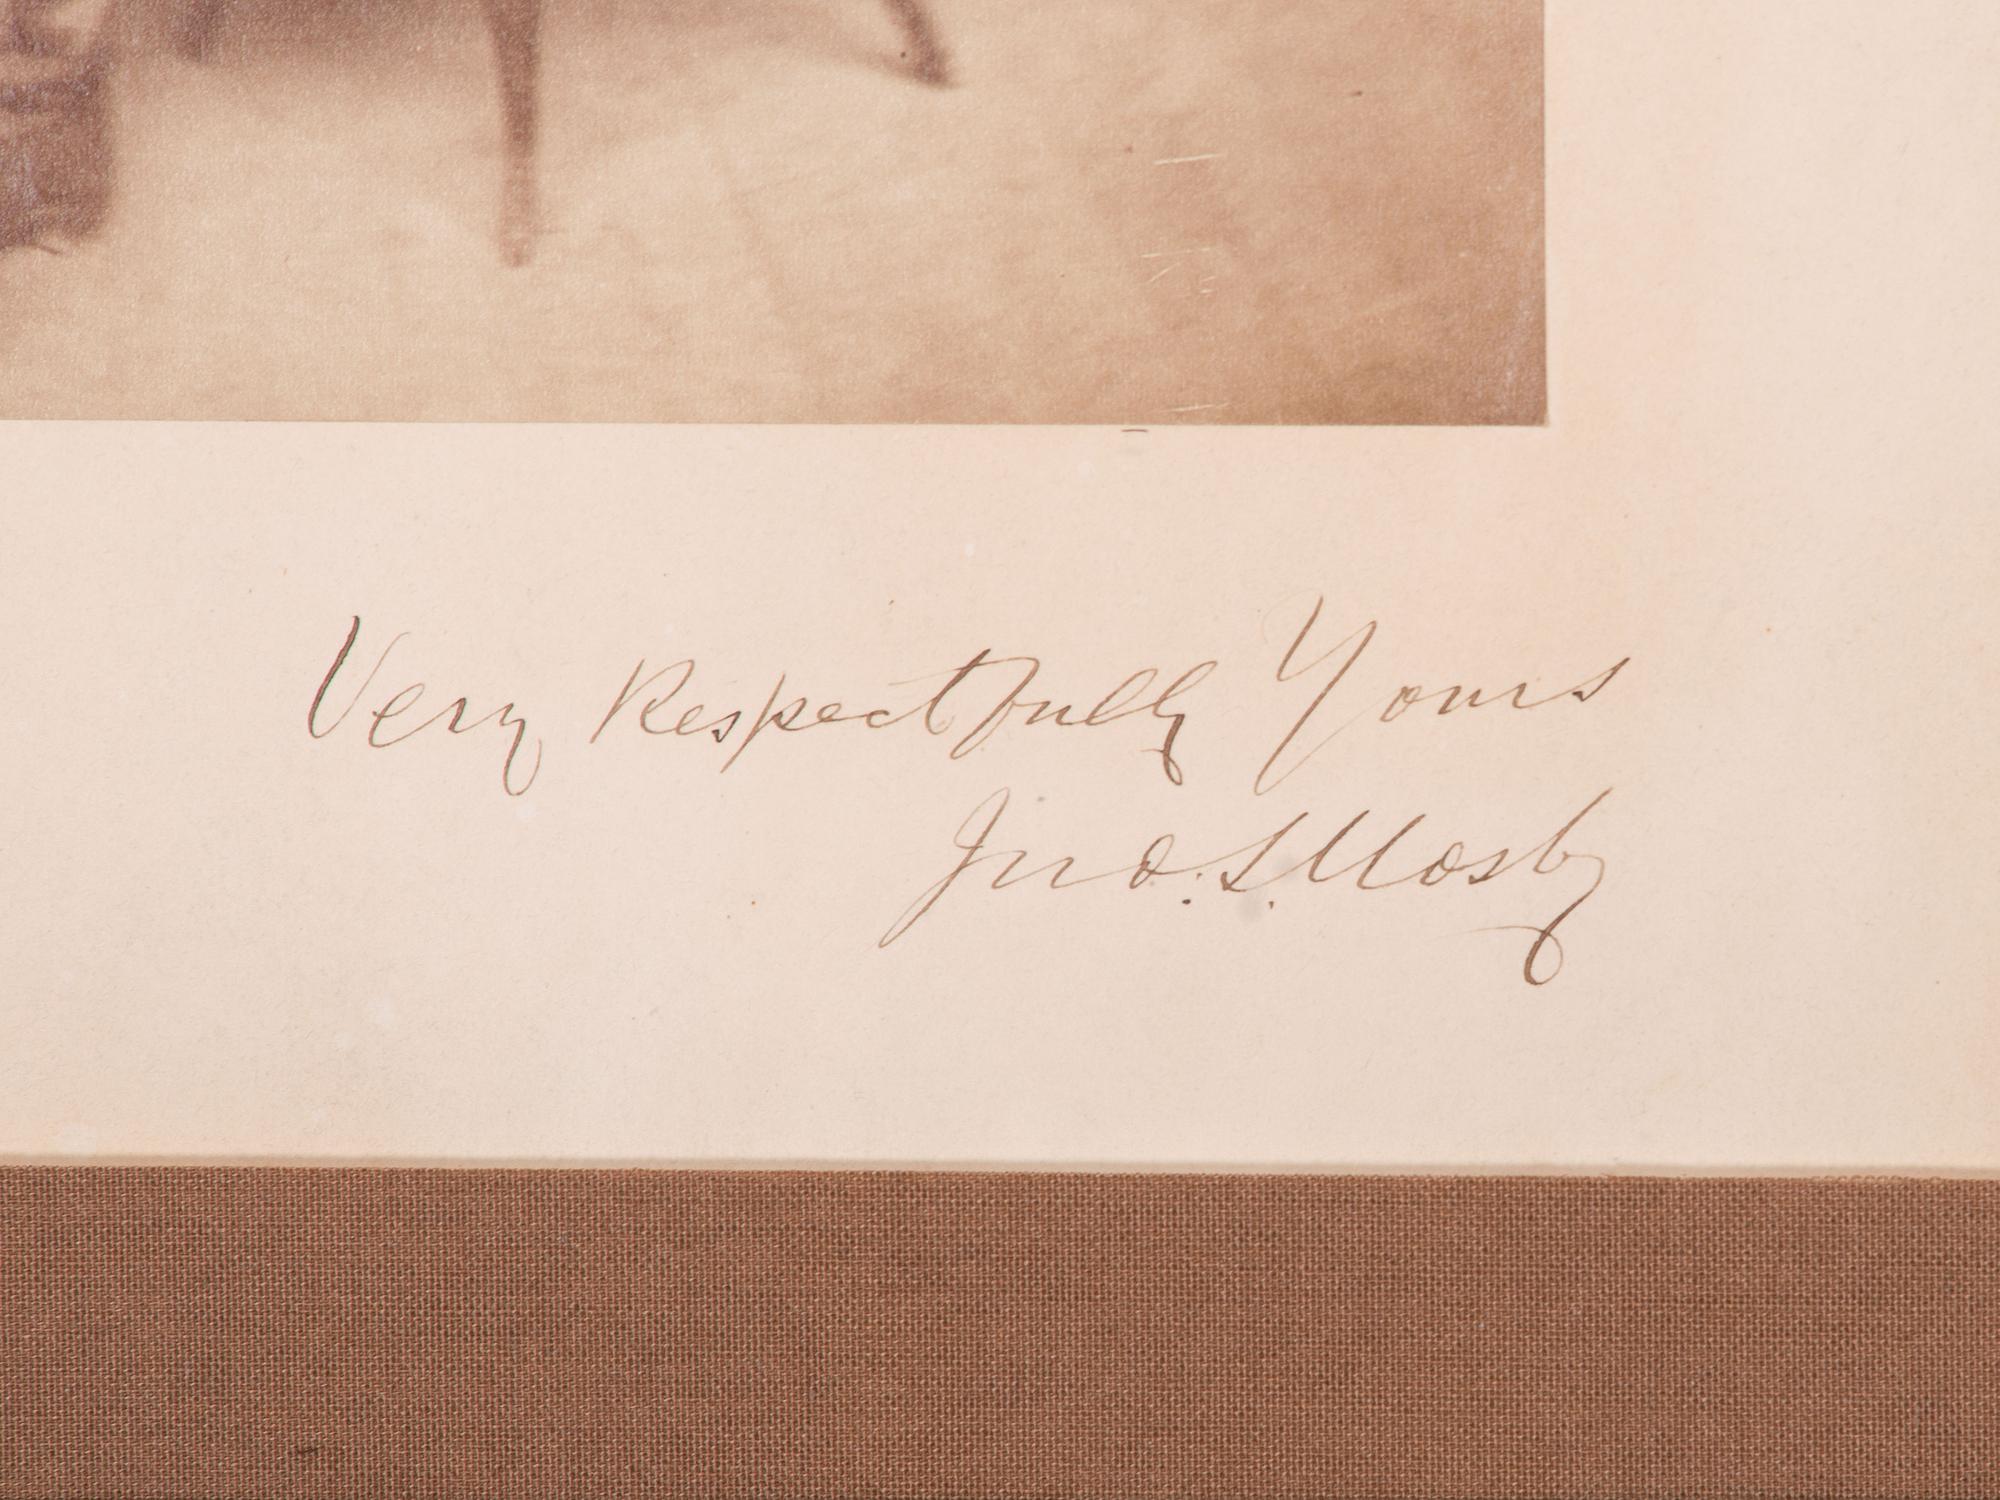 Very Respectfully Yours
Jno. S. Mosby